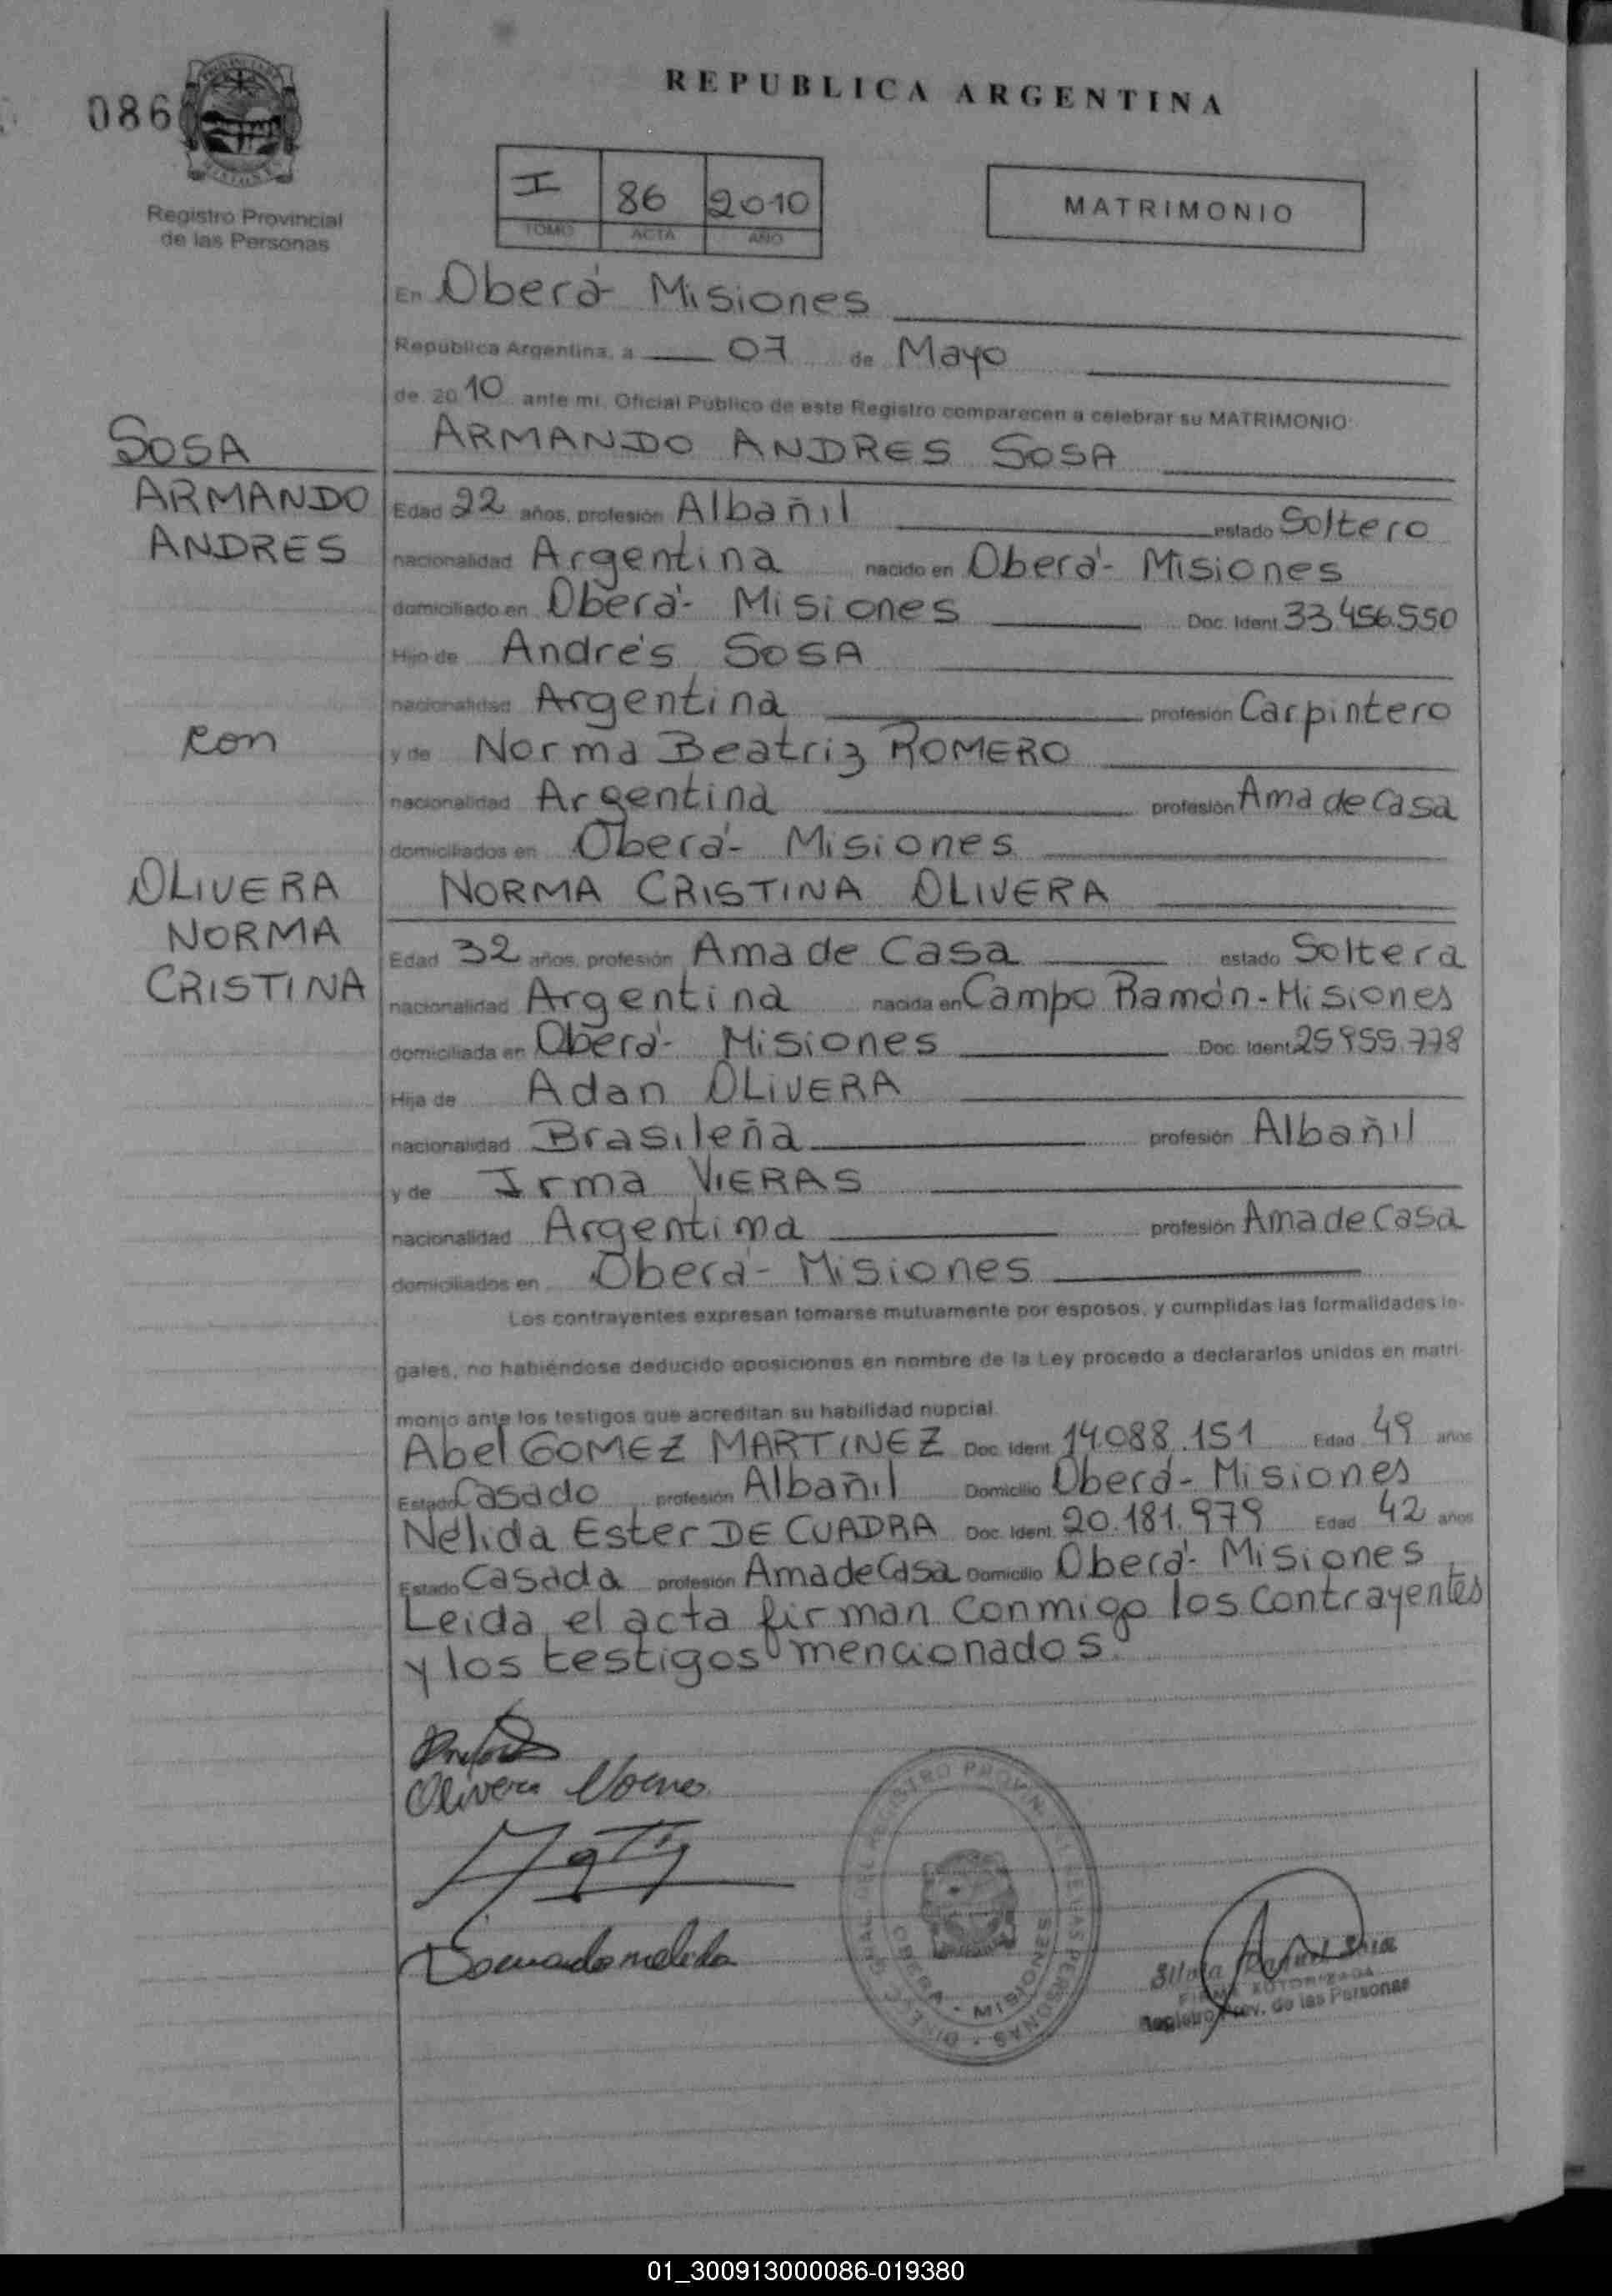 086
Registro Provincial
de las Personas
REPUBLICA ARGENTINA
I 86 2010
TOMO ACTA AÑO
MATRIMONIO
En Oberá Misiones
República Argentina, a 07 de Mayo
de 20 10 ante mi, Oficial Público de este Registro comparecen a celebrar su MATRIMONIO:
SOSA
ARMANDO
ANDRES
con
OLIVERA
NORMA
CRISTINA
ARMANDO ANDRES SOSA
Edad 22 años, profesión Albañil estado Soltero
nacionalidad Argentina nacido en Oberá- Misiones
domiciliado en Oberá- Misiones Doc. Ident. 33.456.550
Hijo de Andrés SOSA
nacionalidad Argentina profesión Carpintero
y de Norma Beatriz ROMERO
nacionalidad Argentina profesión Ama de Casa
domiciliados en Oberá- Misiones
NORMA CRISTINA OLIVERA
Edad 32 años, profesión Ama de Casa estado Soltera
nacionalidad Argentina nacida en Campo Ramón- Misiones
domiciliada en Oberá- Misiones Doc. Ident.
Hija de Adan OLIVERA
nacionalidad Brasileña profesión Albañil
y de Irma VIERAS
nacionalidad Argentina profesión Ama de Casa
domiciliados en Oberá- Misiones
Los contrayentes expresan tomarse mutuamente por esposos, y cumplidas las formalidades le-
gales, no habiéndose deducido oposiciones en nombre de la Ley procedo a declararlos unidos en matri-
monio ante los testigos que acreditan su habilidad nupcial.
Abel GOMEZ MARTINEZ Doc. Ident. 14.088.151 Edad 49 años
Estado Casado profesión Albañil Domicilio Oberá- Misiones
Nélida Ester DE CUADRA Doc. Ident. 20.181.979 Edad 42 años
Estado Casada profesión Ama de Casa Domicilio Oberá- Misiones
Leida el acta firman conmigo los contrayentes
y los testigos mencionados.
Olivera Norma
REGISTRO PROVINCIAL DE LAS PERSONAS
OBERA - MISIONES
FIRMA AUTORIZADA
Registro Prov. de las Personas
01_300913000086-019380